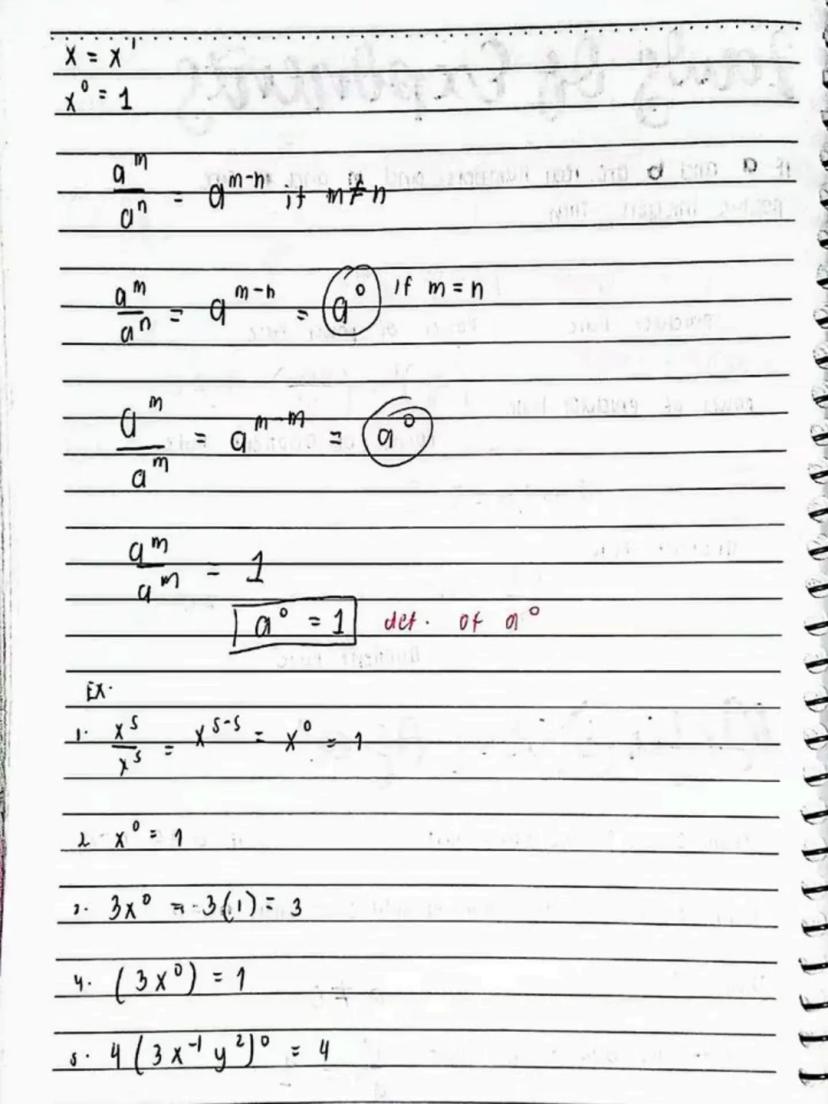 x = x¹
x⁰ = 1
aᵐ/aⁿ = aᵐ⁻ⁿ if m ≠ n
aᵐ/aⁿ = aᵐ⁻ⁿ = a⁰ if m = n
aᵐ/aᵐ = aᵐ⁻ᵐ = a⁰
aᵐ/aᵐ = 1
a⁰ = 1 def. of a⁰
Ex.
1. x⁵/x⁵ = x⁵⁻⁵ = x⁰ = 1
2. x⁰ = 1
3. 3x⁰ = 3(1) = 3
4. (3x⁰) = 1
5. 4(3x⁻¹y²)⁰ = 4